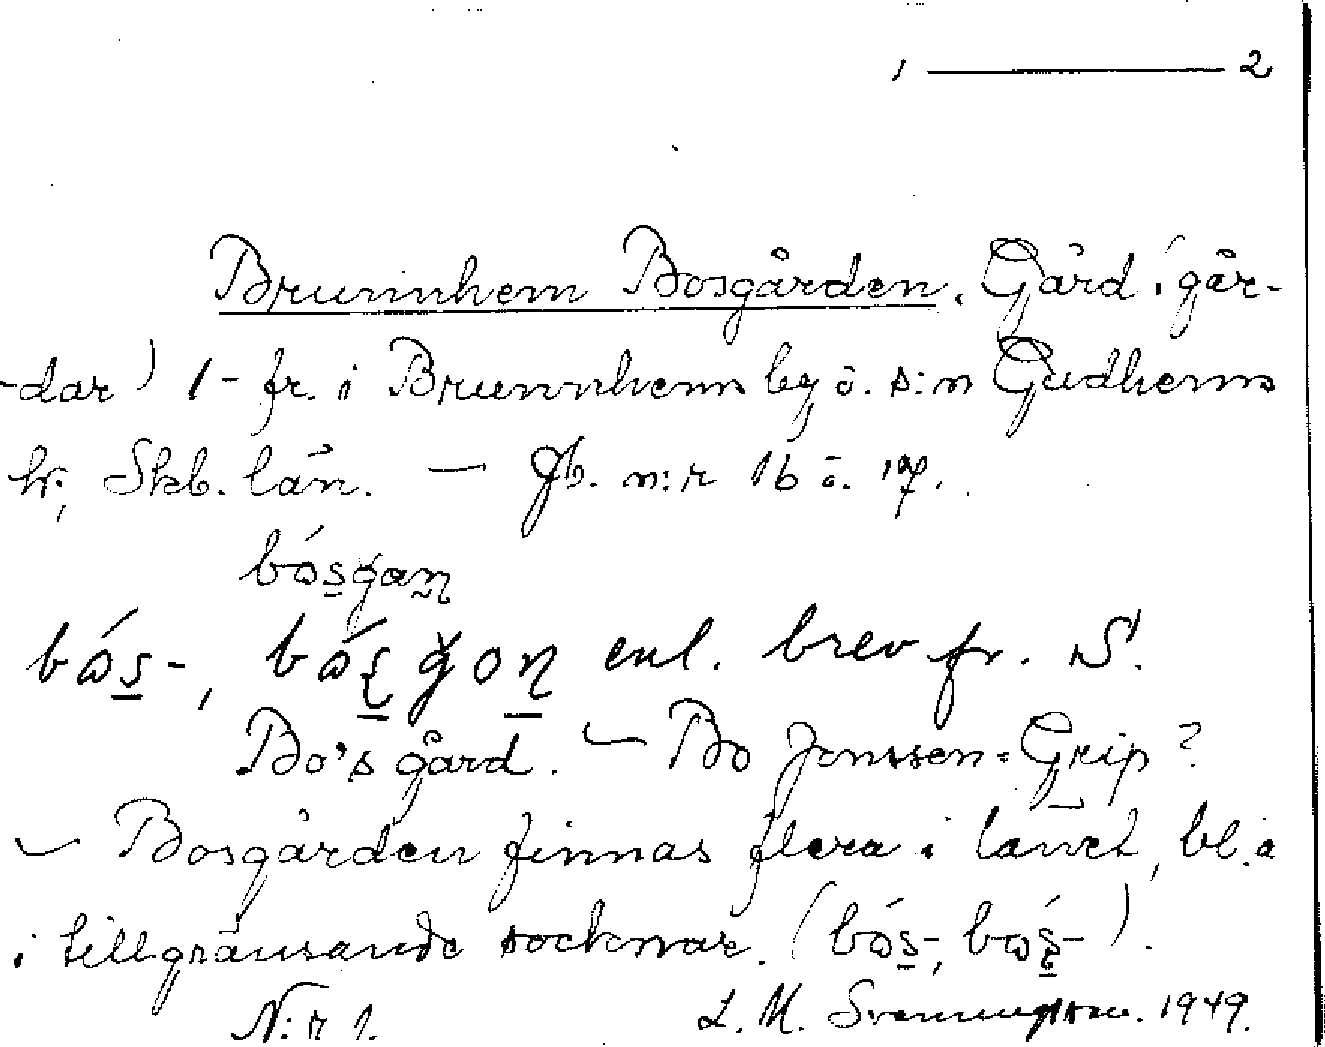 1 ——— 2
Brunnhem Bosgården. Gård (går-
-dar) 1- fr. i Brunnhems by o. s:n Gudhems
hr, Skb. län. — Jb. n:r 16 o. 17.
bósgan
bós-, bósgon enl. brev fr. S.
Bo's gård. — Bo Jonsson-Grip?
— Bosgården finnas flera i länet, bl.a
i tillgränsande socknar. (bós-, bós-).
N:r 1. L. M. Svenungsson. 1949.